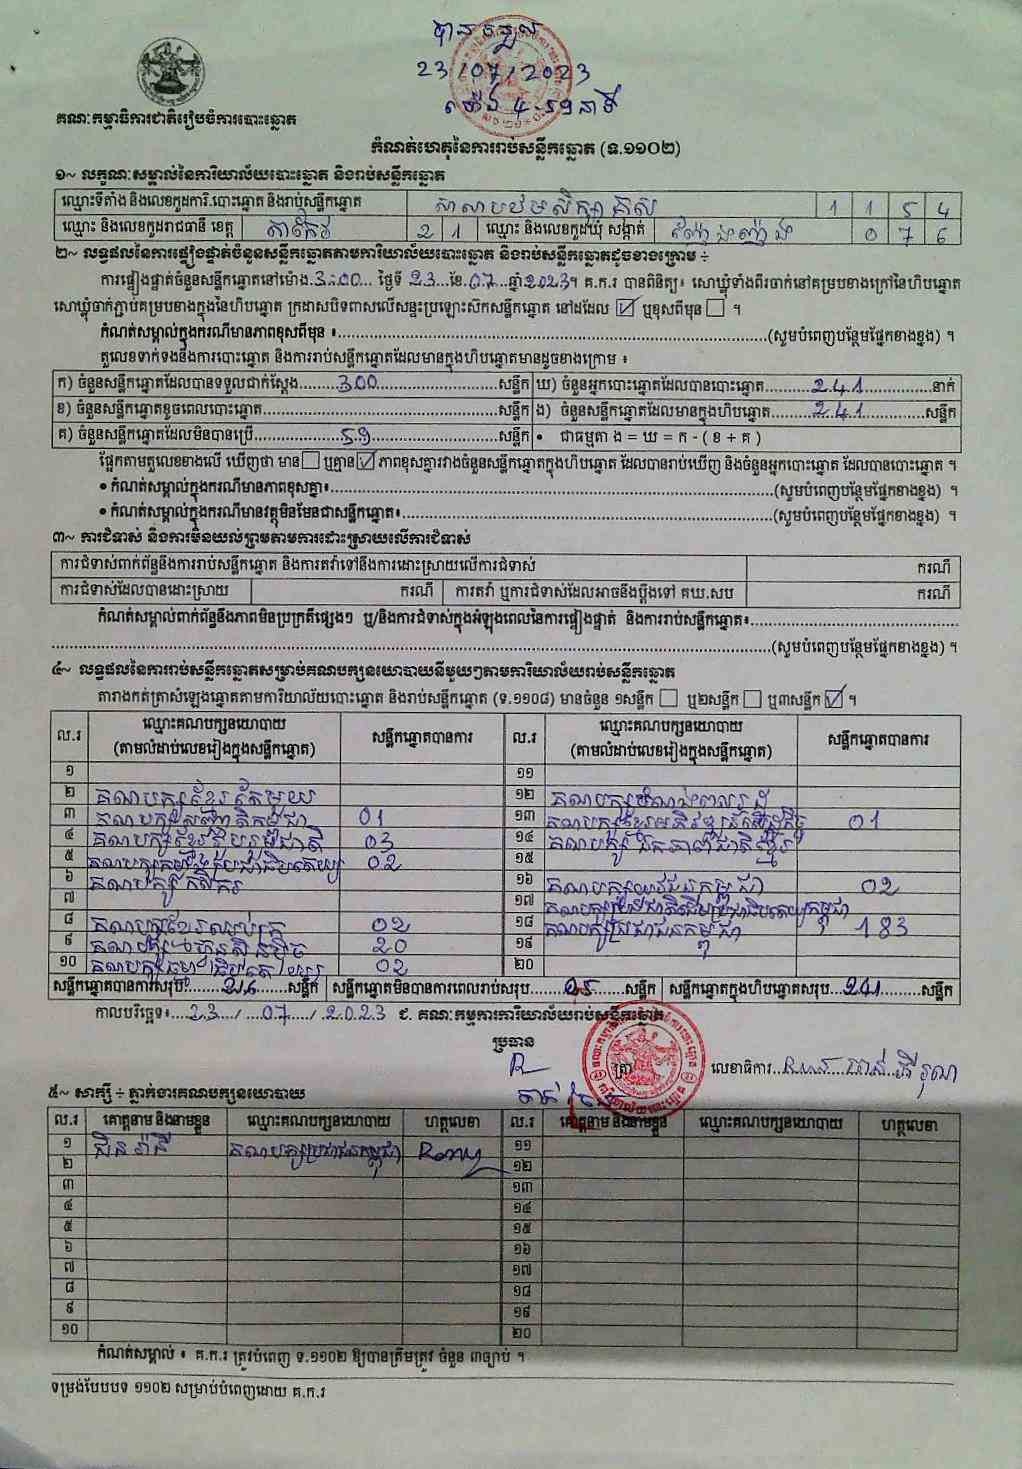 បានទទួល
23/07/2023
ម៉ោង 4-59 នាទី
គណៈកម្មាធិការជាតិរៀបចំការបោះឆ្នោត
កំណត់ហេតុនៃការរាប់សន្លឹកឆ្នោត (ទ.១១០២)
១~ លក្ខណៈសម្គាល់នៃការិយាល័យបោះឆ្នោត និងរាប់សន្លឹកឆ្នោត
ឈ្មោះទីតាំង និងលេខកូដការិ.បោះឆ្នោត និងរាប់សន្លឹកឆ្នោត សាលាបឋមសិក្សា 1 1 5 4
ឈ្មោះ និងលេខកូដរាជធានី ខេត្ត តាកែវ 2 1 ឈ្មោះ និងលេខកូដឃុំ សង្កាត់ 0 7 6
២~ លទ្ធផលនៃការផ្ទៀងផ្ទាត់ចំនួនសន្លឹកឆ្នោតតាមការិយាល័យបោះឆ្នោត និងរាប់សន្លឹកឆ្នោតដូចខាងក្រោម ៖
ការផ្ទៀងផ្ទាត់ចំនួនសន្លឹកឆ្នោតនៅម៉ោង 3:00 ថ្ងៃទី 23 ខែ 07 ឆ្នាំ 2023។ គ.ក.រ បានពិនិត្យ៖ សោឃ្លុំទាំងពីរចាក់នៅគម្របខាងក្រៅនៃហិបឆ្នោត
សោឃ្លុំចាក់ភ្ជាប់គម្របខាងក្នុងនៃហិបឆ្នោត ក្រដាសបិទពាសលើសន្ទះប្រឡោះស៊កសន្លឹកឆ្នោត នៅដដែល ☑ ឬខុសពីមុន ☐ ។
កំណត់សម្គាល់ក្នុងករណីមានភាពខុសពីមុន ៖ (សូមបំពេញបន្ថែមផ្នែកខាងខ្នង) ។
តួលេខទាក់ទងនឹងការបោះឆ្នោត និងការរាប់សន្លឹកឆ្នោតដែលមានក្នុងហិបឆ្នោតមានដូចខាងក្រោម ៖
ក) ចំនួនសន្លឹកឆ្នោតដែលបានទទួលជាក់ស្តែង 300 សន្លឹក ឃ) ចំនួនអ្នកបោះឆ្នោតដែលបានបោះឆ្នោត 241 នាក់
ខ) ចំនួនសន្លឹកឆ្នោតខូចពេលបោះឆ្នោត សន្លឹក ង) ចំនួនសន្លឹកឆ្នោតដែលមានក្នុងហិបឆ្នោត 241 សន្លឹក
គ) ចំនួនសន្លឹកឆ្នោតដែលមិនបានប្រើ 59 សន្លឹក • ជាធម្មតា ង = ឃ = ក - ( ខ + គ )
ផ្អែកតាមតួលេខខាងលើ ឃើញថា មាន ☐ ឬគ្មាន ☑ ភាពខុសគ្នារវាងចំនួនសន្លឹកឆ្នោតក្នុងហិបឆ្នោត ដែលបានរាប់ឃើញ និងចំនួនអ្នកបោះឆ្នោត ដែលបានបោះឆ្នោត ។
• កំណត់សម្គាល់ក្នុងករណីមានភាពខុសគ្នា៖ (សូមបំពេញបន្ថែមផ្នែកខាងខ្នង) ។
• កំណត់សម្គាល់ក្នុងករណីមានវត្ថុមិនមែនជាសន្លឹកឆ្នោត៖ (សូមបំពេញបន្ថែមផ្នែកខាងខ្នង) ។
៣~ ការជំទាស់ និងការមិនយល់ព្រមតាមការដោះស្រាយលើការជំទាស់
ការជំទាស់ពាក់ព័ន្ធនឹងការរាប់សន្លឹកឆ្នោត និងការតវ៉ាទៅនឹងការដោះស្រាយលើការជំទាស់ ករណី
ការជំទាស់ដែលបានដោះស្រាយ ករណី ការតវ៉ា ឬការជំទាស់ដែលអាចនឹងប្តឹងទៅ គឃ.សប ករណី
កំណត់សម្គាល់ពាក់ព័ន្ធនឹងភាពមិនប្រក្រតីផ្សេងៗ ឬ/និងការជំទាស់ក្នុងអំឡុងពេលនៃការផ្ទៀងផ្ទាត់ និងការរាប់សន្លឹកឆ្នោត៖
(សូមបំពេញបន្ថែមផ្នែកខាងខ្នង) ។
៤~ លទ្ធផលនៃការរាប់សន្លឹកឆ្នោតសម្រាប់គណបក្សនយោបាយនីមួយៗតាមការិយាល័យរាប់សន្លឹកឆ្នោត
តារាងកត់ត្រាសំឡេងឆ្នោតតាមការិយាល័យបោះឆ្នោត និងរាប់សន្លឹកឆ្នោត (ទ.១១០៨) មានចំនួន ១សន្លឹក ☐ ឬ២សន្លឹក ☐ ឬ៣សន្លឹក ☑ ។
ល.រ ឈ្មោះគណបក្សនយោបាយ (តាមលំដាប់លេខរៀងក្នុងសន្លឹកឆ្នោត) សន្លឹកឆ្នោតបានការ ល.រ ឈ្មោះគណបក្សនយោបាយ (តាមលំដាប់លេខរៀងក្នុងសន្លឹកឆ្នោត) សន្លឹកឆ្នោតបានការ
១ ១១
២ គណបក្សខ្មែរតែមួយ ១២
៣ គណបក្សសញ្ជាតិកម្ពុជា 01 ១៣ 01
៤ គណបក្សខ្មែររួបរួមជាតិ 03 ១៤
៥ 02 ១៥
៦ គណបក្សកសិករ ១៦ គណបក្សយុវជនកម្ពុជា 02
៧ ១៧
៨ គណបក្សខ្មែរឈប់ក្រ 02 ១៨ គណបក្សប្រជាជនកម្ពុជា 183
៩ គណបក្សហ្វ៊ុនស៊ិនប៉ិច 20 ១៩
១០ គណបក្សធម្មាធិបតេយ្យ 02 ២០
សន្លឹកឆ្នោតបានការសរុប 216 សន្លឹក សន្លឹកឆ្នោតមិនបានការពេលរាប់សរុប 25 សន្លឹក សន្លឹកឆ្នោតក្នុងហិបឆ្នោតសរុប 241 សន្លឹក
កាលបរិច្ឆេទ៖ 23 / 07 / 2023 ជ. គណៈកម្មការការិយាល័យរាប់សន្លឹកឆ្នោត
ប្រធាន
ត្រា លេខាធិការ
៥~ សាក្សី ៖ ភ្នាក់ងារគណបក្សនយោបាយ
ល.រ គោត្តនាម និងនាមខ្លួន ឈ្មោះគណបក្សនយោបាយ ហត្ថលេខា ល.រ គោត្តនាម និងនាមខ្លួន ឈ្មោះគណបក្សនយោបាយ ហត្ថលេខា
១ គណបក្សប្រជាជនកម្ពុជា ១១
២ ១២
៣ ១៣
៤ ១៤
៥ ១៥
៦ ១៦
៧ ១៧
៨ ១៨
៩ ១៩
១០ ២០
កំណត់សម្គាល់ ៖ គ.ក.រ ត្រូវបំពេញ ទ.១១០២ ឱ្យបានត្រឹមត្រូវ ចំនួន ៣ច្បាប់ ។
ទម្រង់បែបបទ ១១០២ សម្រាប់បំពេញដោយ គ.ក.រ